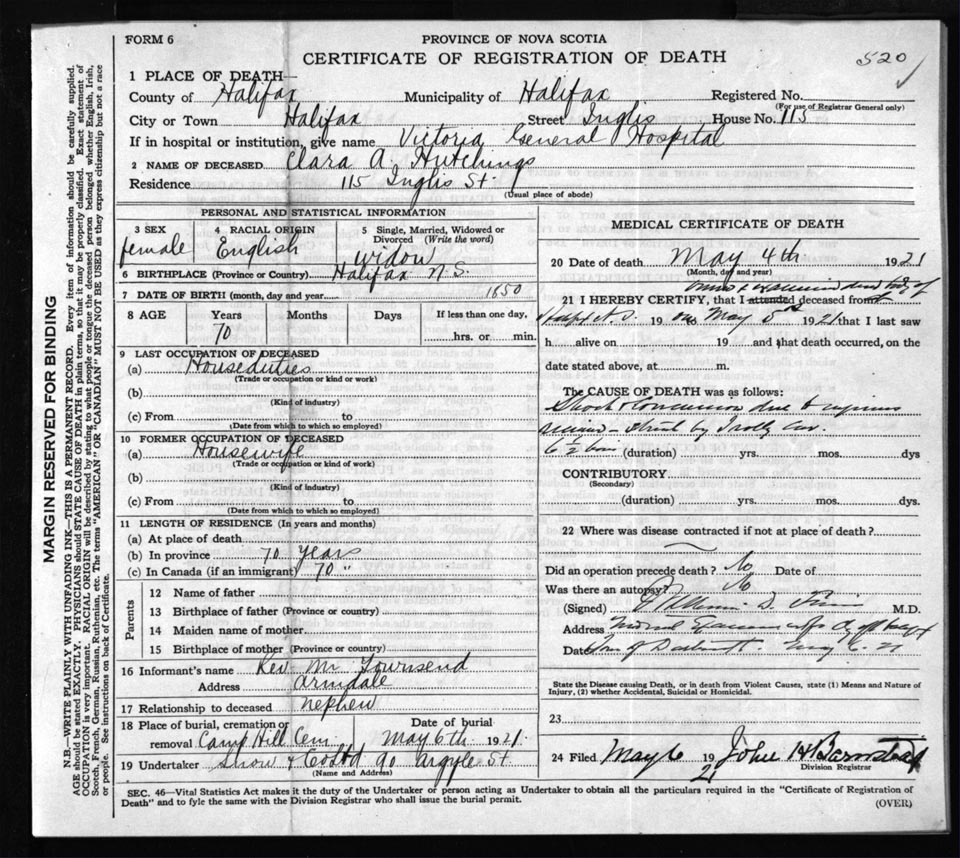 FORM 6
PROVINCE OF NOVA SCOTIA
CERTIFICATE OF REGISTRATION OF DEATH
520
1 PLACE OF DEATH—
County of Halifax Municipality of Halifax Registered No.
(For use of Registrar General only)
City or Town Halifax Street Inglis House No. 115
If in hospital or institution, give name Victoria General Hospital
2 NAME OF DECEASED Clara A. Hutchings
Residence 115 Inglis St.
(Usual place of abode)
PERSONAL AND STATISTICAL INFORMATION
3 SEX female
4 RACIAL ORIGIN English
5 Single, Married, Widowed or Divorced (Write the word) widow
6 BIRTHPLACE (Province or Country) Halifax N.S.
7 DATE OF BIRTH (month, day and year 1850
8 AGE Years Months Days If less than one day,
70 hrs. or min.
9 LAST OCCUPATION OF DECEASED
(a) Houseduties
(Trade or occupation or kind or work)
(b)
(Kind of industry)
(c) From to
(Date from which to which so employed)
10 FORMER OCCUPATION OF DECEASED
(a) Housewife
(Trade or occupation or kind or work)
(b)
(Kind of industry)
(c) From to
(Date from which to which so employed)
11 LENGTH OF RESIDENCE (In years and months)
(a) At place of death
(b) In province 70 years
(c) In Canada (if an immigrant) 70 "
Parents
12 Name of father
13 Birthplace of father (Province or country)
14 Maiden name of mother
15 Birthplace of mother (Province or country)
16 Informant's name Rev. Mr Townsend
Address Armdale
17 Relationship to deceased nephew
18 Place of burial, cremation or removal Camp Hill Cem. Date of burial May 6th 1921
19 Undertaker Snow & Co Ltd 90 Argyle St.
(Name and Address)
MEDICAL CERTIFICATE OF DEATH
20 Date of death May 4th 1921
(Month, day and year)
21 I HEREBY CERTIFY, that I attended deceased from
19 on May 5th 1921 that I last saw
h alive on 19 and that death occurred, on the
date stated above, at m.
The CAUSE OF DEATH was as follows:
Shock & Concussion due to
struck by Trolly Car.
6 ½ hours (duration) yrs. mos. dys
CONTRIBUTORY
(Secondary)
(duration) yrs. mos. dys.
22 Where was disease contracted if not at place of death?
Did an operation precede death? No Date of
Was there an autopsy? No
(Signed) M.D.
Address Medical Examiner
Date May 6. 21
State the Disease causing Death, or in death from Violent Causes, state (1) Means and Nature of
Injury, (2) whether Accidental, Suicidal or Homicidal.
23
24 Filed May 6 1921 John H Barnstead
Division Registrar
SEC. 46—Vital Statistics Act makes it the duty of the Undertaker or person acting as Undertaker to obtain all the particulars required in the "Certificate of Registration of
Death" and to fyle the same with the Division Registrar who shall issue the burial permit.
(OVER)
MARGIN RESERVED FOR BINDING
N.B.—WRITE PLAINLY WITH UNFADING INK—THIS IS A PERMANENT RECORD. Every item of information should be carefully supplied.
AGE should be stated EXACTLY. PHYSICIANS should STATE CAUSE OF DEATH in plain terms, so that it may be properly classified. Exact statement of
OCCUPATION is very important. RACIAL ORIGIN will be described by stating to what people or tongue the deceased person belonged whether English, Irish,
Scotch, French, German, Russian, Ruthenian, etc. The terms "AMERICAN" or "CANADIAN" MUST NOT BE USED as they express citizenship but not a race
or people. See instructions on back of Certificate.